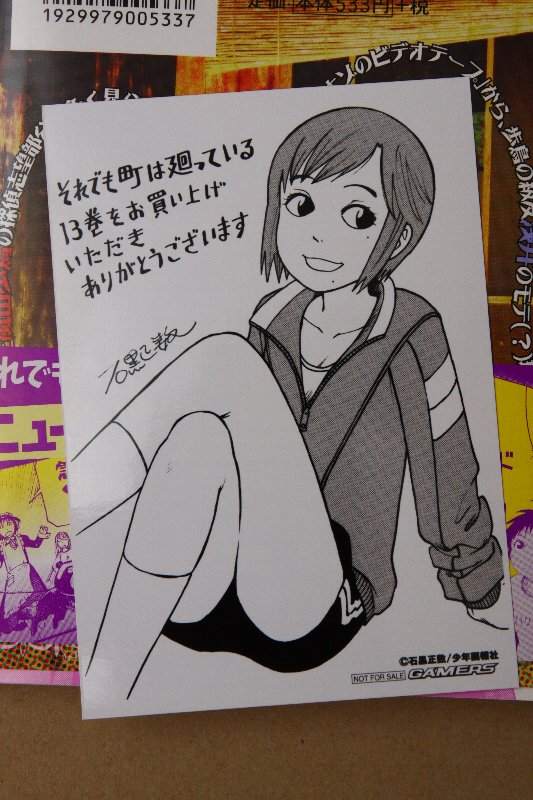 1929979005337
定価[本体533円]+税
のビデオテープ』から、歩鳥の級友
のモテ(?)
それでも町は廻っている
13巻をお買い上げ
いただき
ありがとうございます
石黒正数
れでも
ニュー
ド
©石黒正数/少年画報社
NOT FOR SALE GAMERS